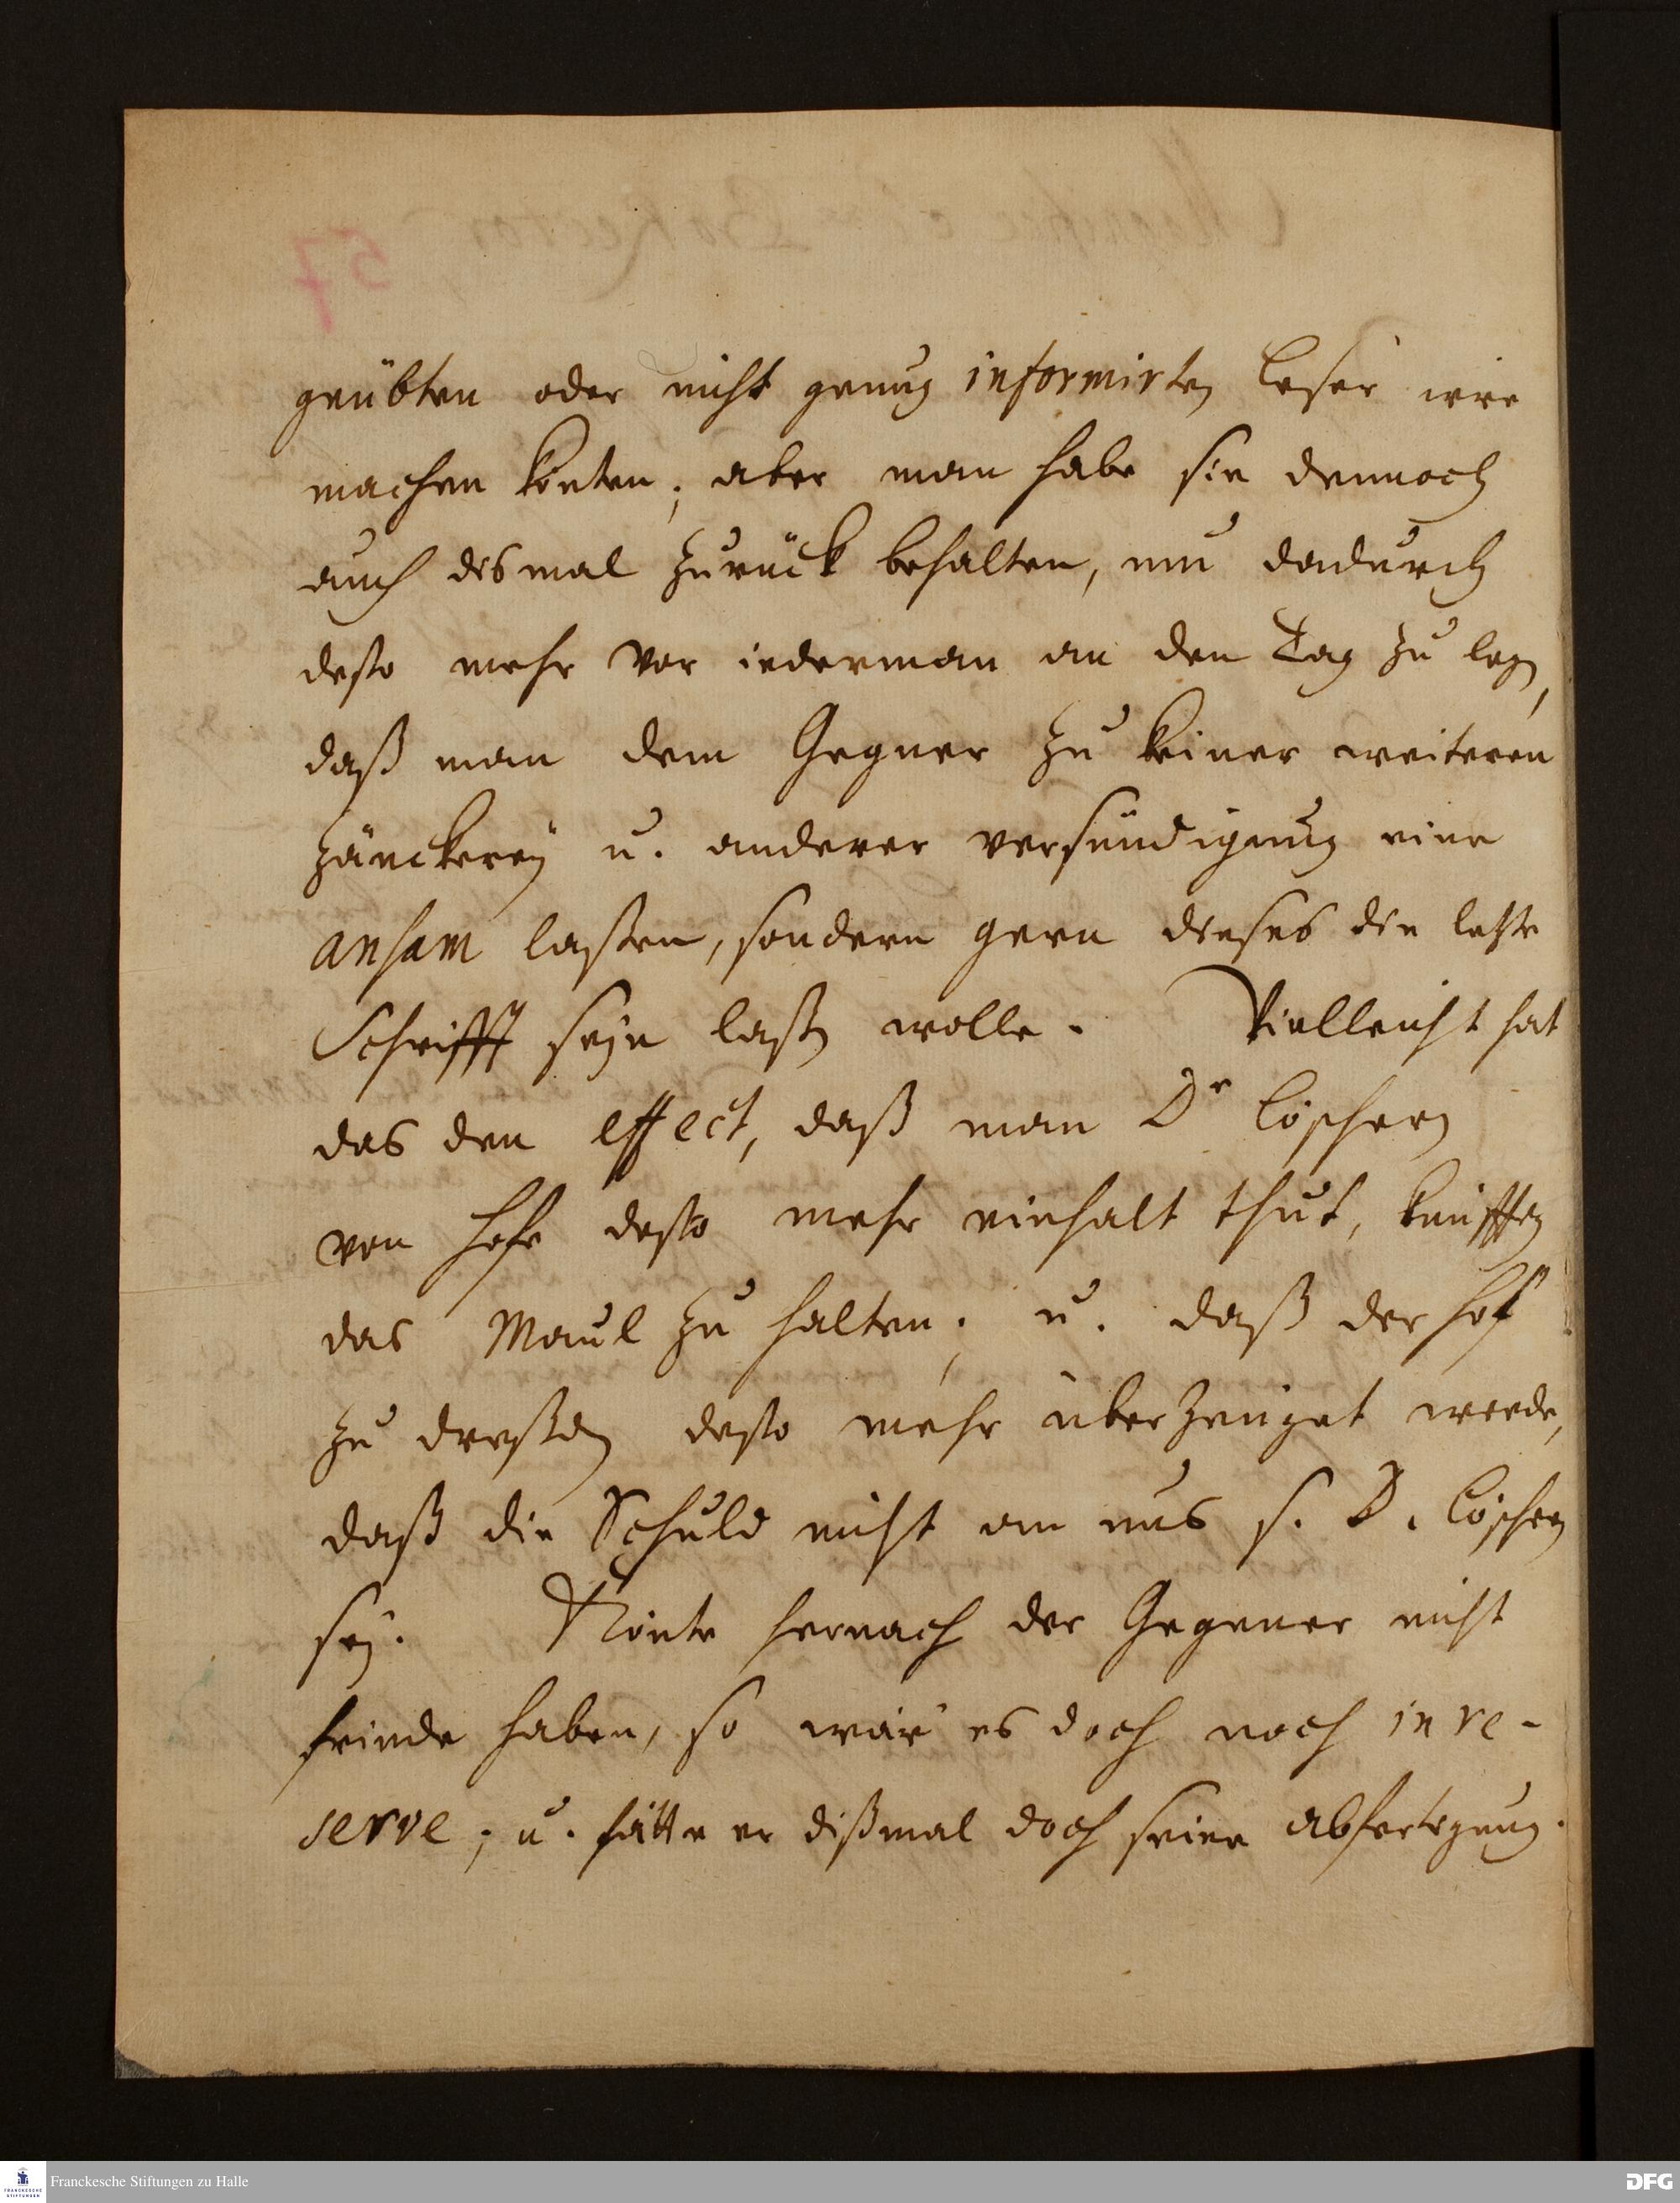 geübten oder nicht genug informirten Leser irre
machen könten; aber man habe sie dennoch
auch dismal zurück behalten, um dadurch
desto mehr vor iederman an den Tag zu legen,
daß man dem Gegner zu keiner weiteren
Zänckerey u. anderer versündigung eine
ansam laßen, sondern gern dieses die letzte
Schrifft seyn laßen wolle. Vielleicht hat
das den effect, daß man Dr Löschern
von Hofe desto mehr einhalt thut, künfftig
das Maul zu halten; u. daß der Hof
zu Dreßden desto mehr überzeuget werde,
daß die Schuld nicht an uns s. D. Löschern
sey. Könte hernach der Gegener nicht
friede haben, so wär es doch noch in re-
serve; u. hätte er dißmal doch seine abfertigung.
Franckesche Stiftungen zu Halle
FRANCKESCHE STIFTUNGEN
DFG